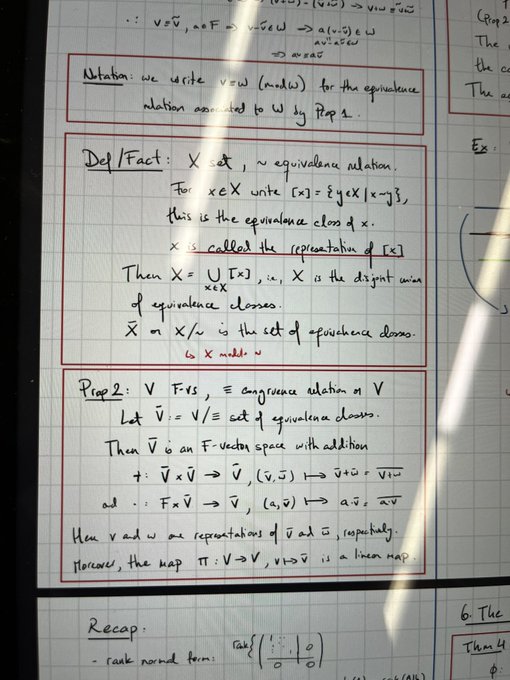 ·: v≡v̄, a∈F ⇒ v-v̄∈W ⇒ a(v-v̄)∈W
av-av̄∈W
⇒ av≡av̄
Notation: we write v≡w (mod W) for the equivalence
relation associated to W by Prop 1.
Def/Fact: X set, ~ equivalence relation.
For x∈X write [x] = {y∈X | x~y},
this is the equivalence class of x.
x is called the representative of [x]
Then X = ⋃ [x], i.e., X is the disjoint union
x∈X
of equivalence classes.
X̄ or X/~ is the set of equivalence classes.
↳ X modulo ~
Prop 2: V F-vs, ≡ congruence relation on V
Let V̄ := V/≡ set of equivalence classes.
Then V̄ is an F-vector space with addition
+: V̄ × V̄ → V̄, (v̄, w̄) ↦ v̄+w̄ = \overline{v+w}
and ·: F × V̄ → V̄, (a, v̄) ↦ a·v̄ = \overline{a·v}
Here v and w are representatives of v̄ and w̄, respectively.
Moreover, the map π: V → V̄, v ↦ v̄ is a linear map.
Recap:
- rank normal form:
(Prop 2
The
the co
The a
Ex:
6. The
Thm 4
φ: